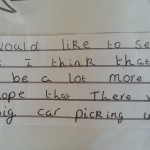 would like to se
I think that
be a lot more
ope that There w
big car picking u